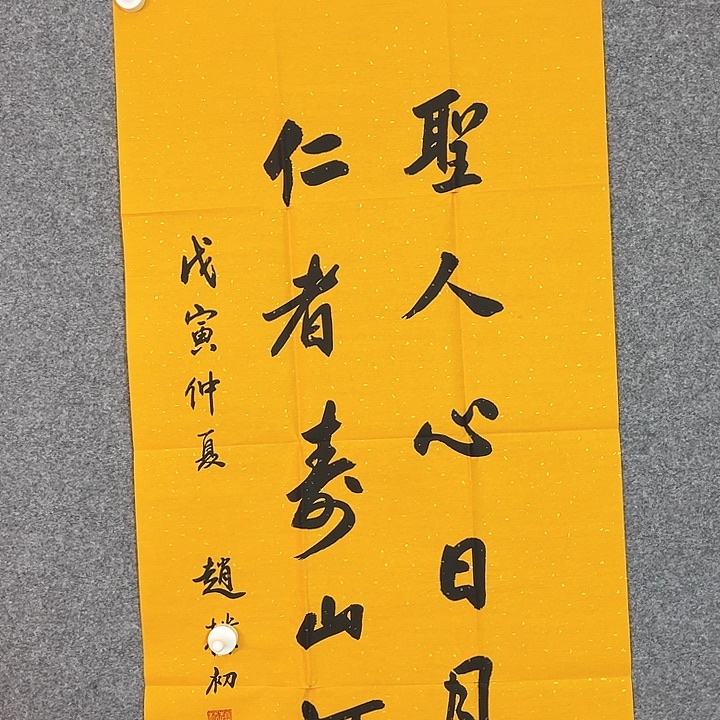 聖人心日月
仁者寿山
戊寅仲夏
趙樸初